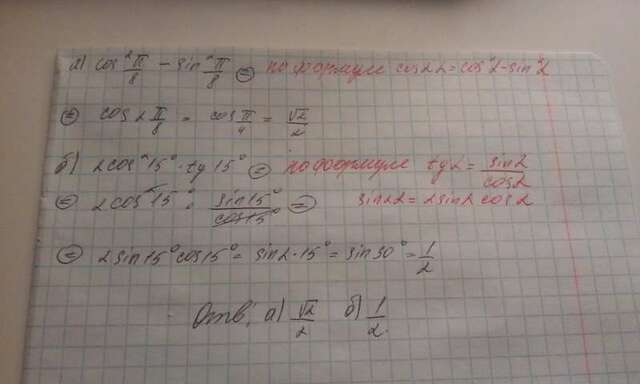 а) cos²π/8 - sin²π/8 = по формуле cos2α = cos²α - sin²α
= cos2π/8 = cosπ/4 = √2/2
б) 2cos²15° · tg15° = по формуле tgα = sinα/cosα
= 2cos²15° · sin15°/cos15° = sin2α = 2sinα cosα
= 2sin15°cos15° = sin2·15° = sin30° = 1/2
Отв: а) √2/2 б) 1/2